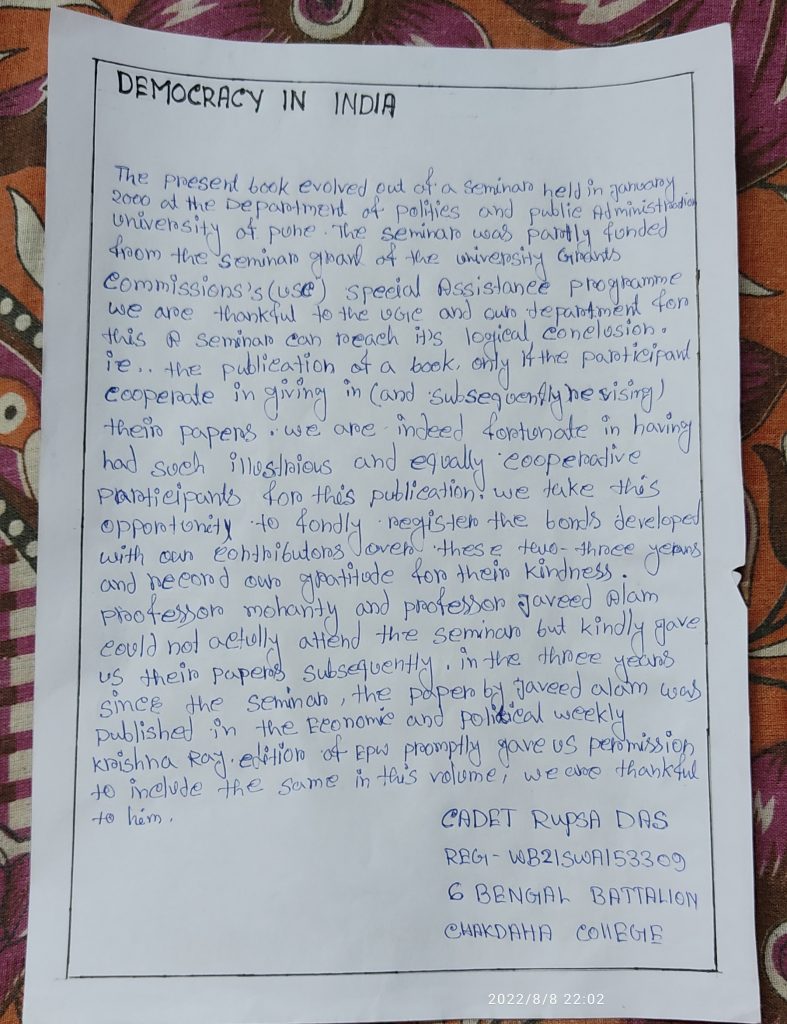 DEMOCRACY IN INDIA
The present book evolved out of a seminar held in january
2000 at the Department of politics and public Administration
university of pune. The seminar was partly funded
from the seminar grant of the university Grants
Commissions's (USC) special Assistance programme
we are thankful to the UGC and our department for
this A seminar can reach it's logical conclusion.
ie.. the publication of a book, only if the participant
cooperate in giving in (and subsequently revising)
their papers. we are indeed fortunate in having
had such illustrious and equally cooperative
participants for this publication. we take this
opportunity to fondly register the bonds developed
with our contributors over these two-three years
and record our gratitude for their kindness.
professor mohanty and professor Javeed Alam
could not actully attend the seminar but kindly gave
us their papers subsequently. in the three years
since the seminar, the paper by Javeed alam was
published in the Economic and political weekly
krishna Ray. edition of EPW promptly gave us permission
to include the same in this volume, we are thankful
to him.
CADET RUPSA DAS
REG- WB21SWA153309
6 BENGAL BATTALION
CHAKDAHA COllEGE
2022/8/8 22:02